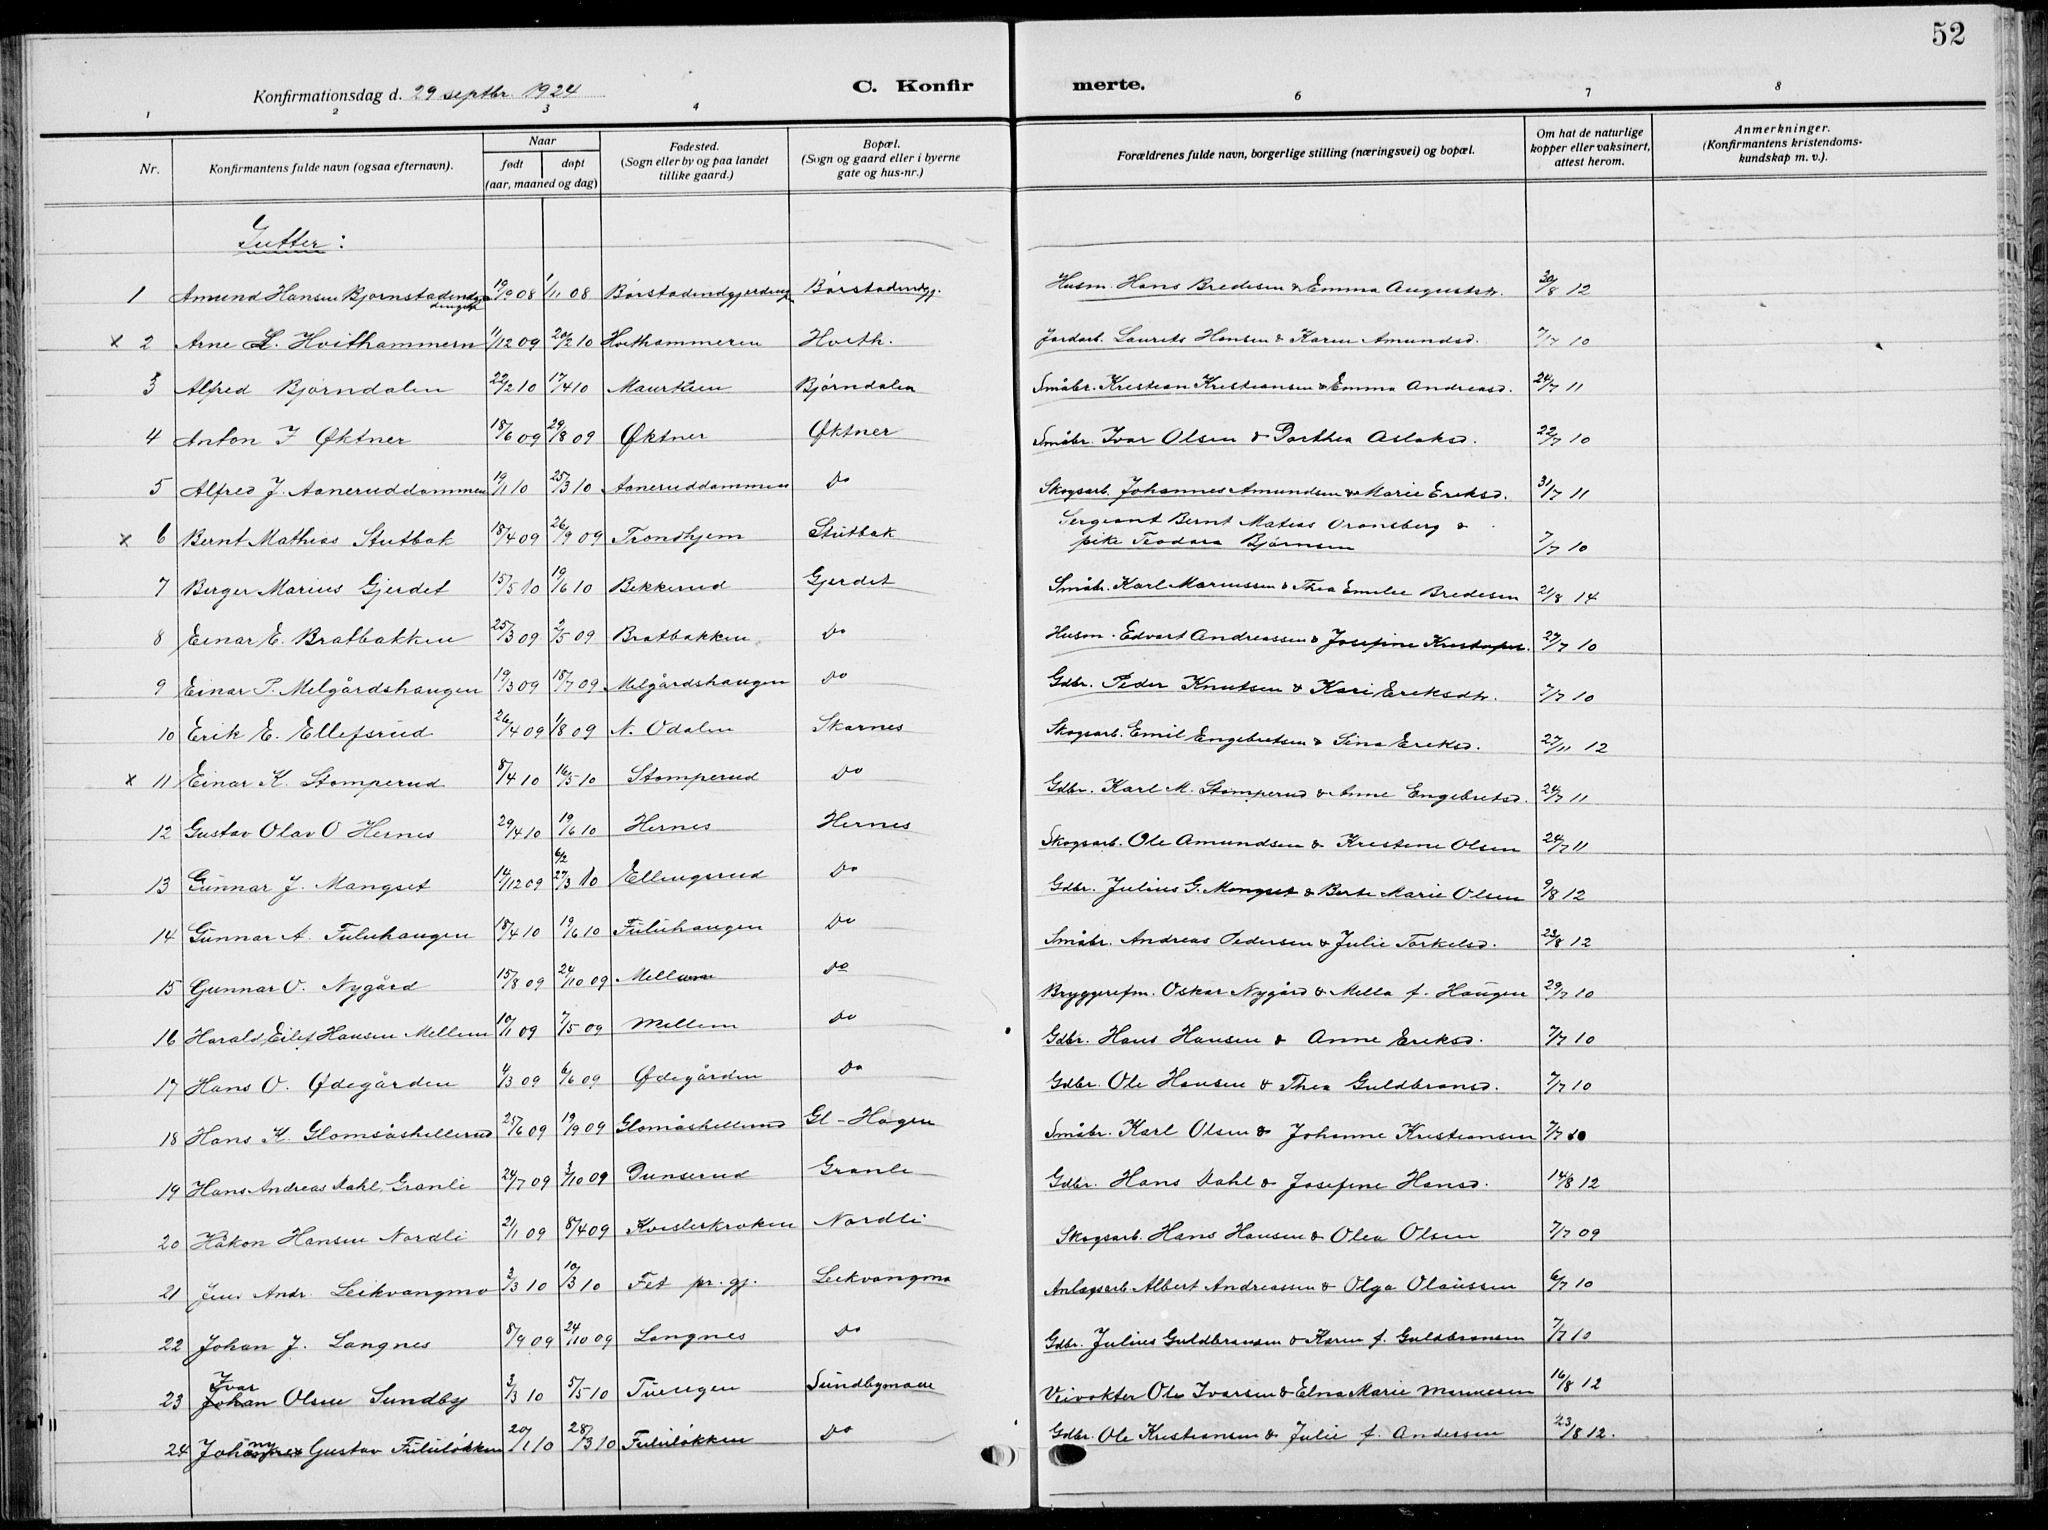 52
Konfirmationsdag d. 29 septbr. 1924
C. Konfirmerte.
1 2 3 4 6 7 8
Nr. | Konfirmantens fulde navn (ogsaa efternavn). | Naar født | døpt (aar, maaned og dag) | Fødested. (Sogn eller by og paa landet tillike gaard.) | Bopæl. (Sogn og gaard eller i byerne gate og hus-nr.) | Forældrenes fulde navn, borgerlige stilling (næringsvei) og bopæl. | Om hat de naturlige kopper eller vaksinert, attest herom. | Anmerkninger. (Konfirmantens kristendomskundskap m. v.).
Gutter:
1 Amund Hansen 19/9 08 1/11 08 Børstadendgj. Husm. Hans Bredesen & Emma Augustdtr. 30/8 12
x 2 Arne L. Hvithammern 11/12 09 20/2 10 Hvithammeren Hvith. Jordarb. Laurits Hansen & Karen Amundsd. 7/7 10
3 Alfred Bjørndalen 22/2 10 17/4 10 Bjørndalen Småbr. Kristian Kristiansen & Emma Andreasd. 24/7 11
4 Anton I Øktner 18/6 09 29/8 09 Øktner Øktner Småbr. Ivar Olsen & Dorthea Aslaksd. 22/7 10
5 Alfred J. Aaneruddammen 19/1 10 25/3 10 Aaneruddammen Do Skogsarb. Johannes Amundsen & Marie Eriksd. 31/7 11
x 6 Bernt Mathias Stutbak 18/4 09 26/9 09 Trondhjem Stutbak Sergeant Bernt Matias Cronsberg &
pike Teodora Bjørnsen 7/7 10
7 Berger Marius Gjerdet 15/5 10 19/6 10 Bekkerud Gjerdet Småbr. Karl Mariussen & Thea Emilie Bredesen 21/8 14
8 Einar E. Bratbakken 25/3 09 2/5 09 Bratbakken Do Husm. Edvart Andreassen & Josefine 27/7 10
9 Einar P. Melgårdshaugen 19/3 09 18/7 09 Melgårdshaugen Do Gdbr. Peder Knutsen & Kari Eriksdtr. 7/7 10
10 Erik E. Ellefsrud 26/4 09 1/8 09 N. Odalen Skarnes Skogsarb. Emil Engebretsen & Sina Eriksd. 27/11 12
x 11 Einar K. Stomperud 8/4 10 16/5 10 Stomperud Do Gdbr. Karl M. Stomperud & Anne Engebretsd. 24/7 11
12 Gustav Olav O Hernes 29/4 10 19/6 10 Hernes Hernes Skogsarb. Ole Amundsen & Kristine Olsen 24/7 11
13 Gunnar J. Mangset 14/12 09 6/2 27/3 10 Ellingsrud Do Gdbr. Julius G. Mangset & Berte Marie Olsen 9/8 12
14 Gunnar A. Fuluhaugen 18/4 10 19/6 10 Fuluhaugen Do Småbr. Andreas Pedersen & Julie Torkelsd. 23/8 12
15 Gunnar O. Nygård 15/8 09 24/10 09 Mellem Do Bryggerefm. Oskar Nygård & Mella f. Haugen 29/7 10
16 Harald Eilef Hansen Mellem 10/1 09 7/5 09 Mellem Do Gdbr. Hans Hansen & Anne Eriksd. 7/7 10
17 Hans O. Ødegården 4/3 09 6/6 09 Ødegården Do Gdbr. Ole Hansen & Thea Guldbransd. 7/7 10
18 Hans K. Glomsåshellerud 25/6 09 19/9 09 Glomåshellerud Gl-Hagen Småbr. Karl Olsen & Johanne Kristiansen 7/7 10
19 Hans Andreas Dahl, Granli 24/7 09 3/10 09 Dunserud Granli Gdbr. Hans Dahl & Josefine Hansd. 14/8 12
20 Håkon Hansen Nordli 21/1 09 8/4 09 Kvislerkroken Nordli Skogsarb. Hans Hansen & Olea Olsen 7/7 09
21 Jens Andr. Leikvangmo 3/3 10 10/3 10 Fet pr.gj. Leikvangmo Anlægsarb. Albert Andreassen & Olga Olaussen 6/7 10
22 Johan J. Langnes 8/9 09 24/10 09 Langnes Do Gdbr. Julius Guldbransen & Karen f. Guldbransen 7/7 10
Ivar
23 Johan Olsen Sundby 3/3 10 5/5 10 Tuengen Sundbymoen Veivokter Ole Ivarsen & Elna Marie 16/8 12
24 Johnny Gustav Fululøkken 20/1 10 28/3 10 Fululøkken Do Gdbr. Ole Kristiansen & Julie f. Andersen 23/8 12.